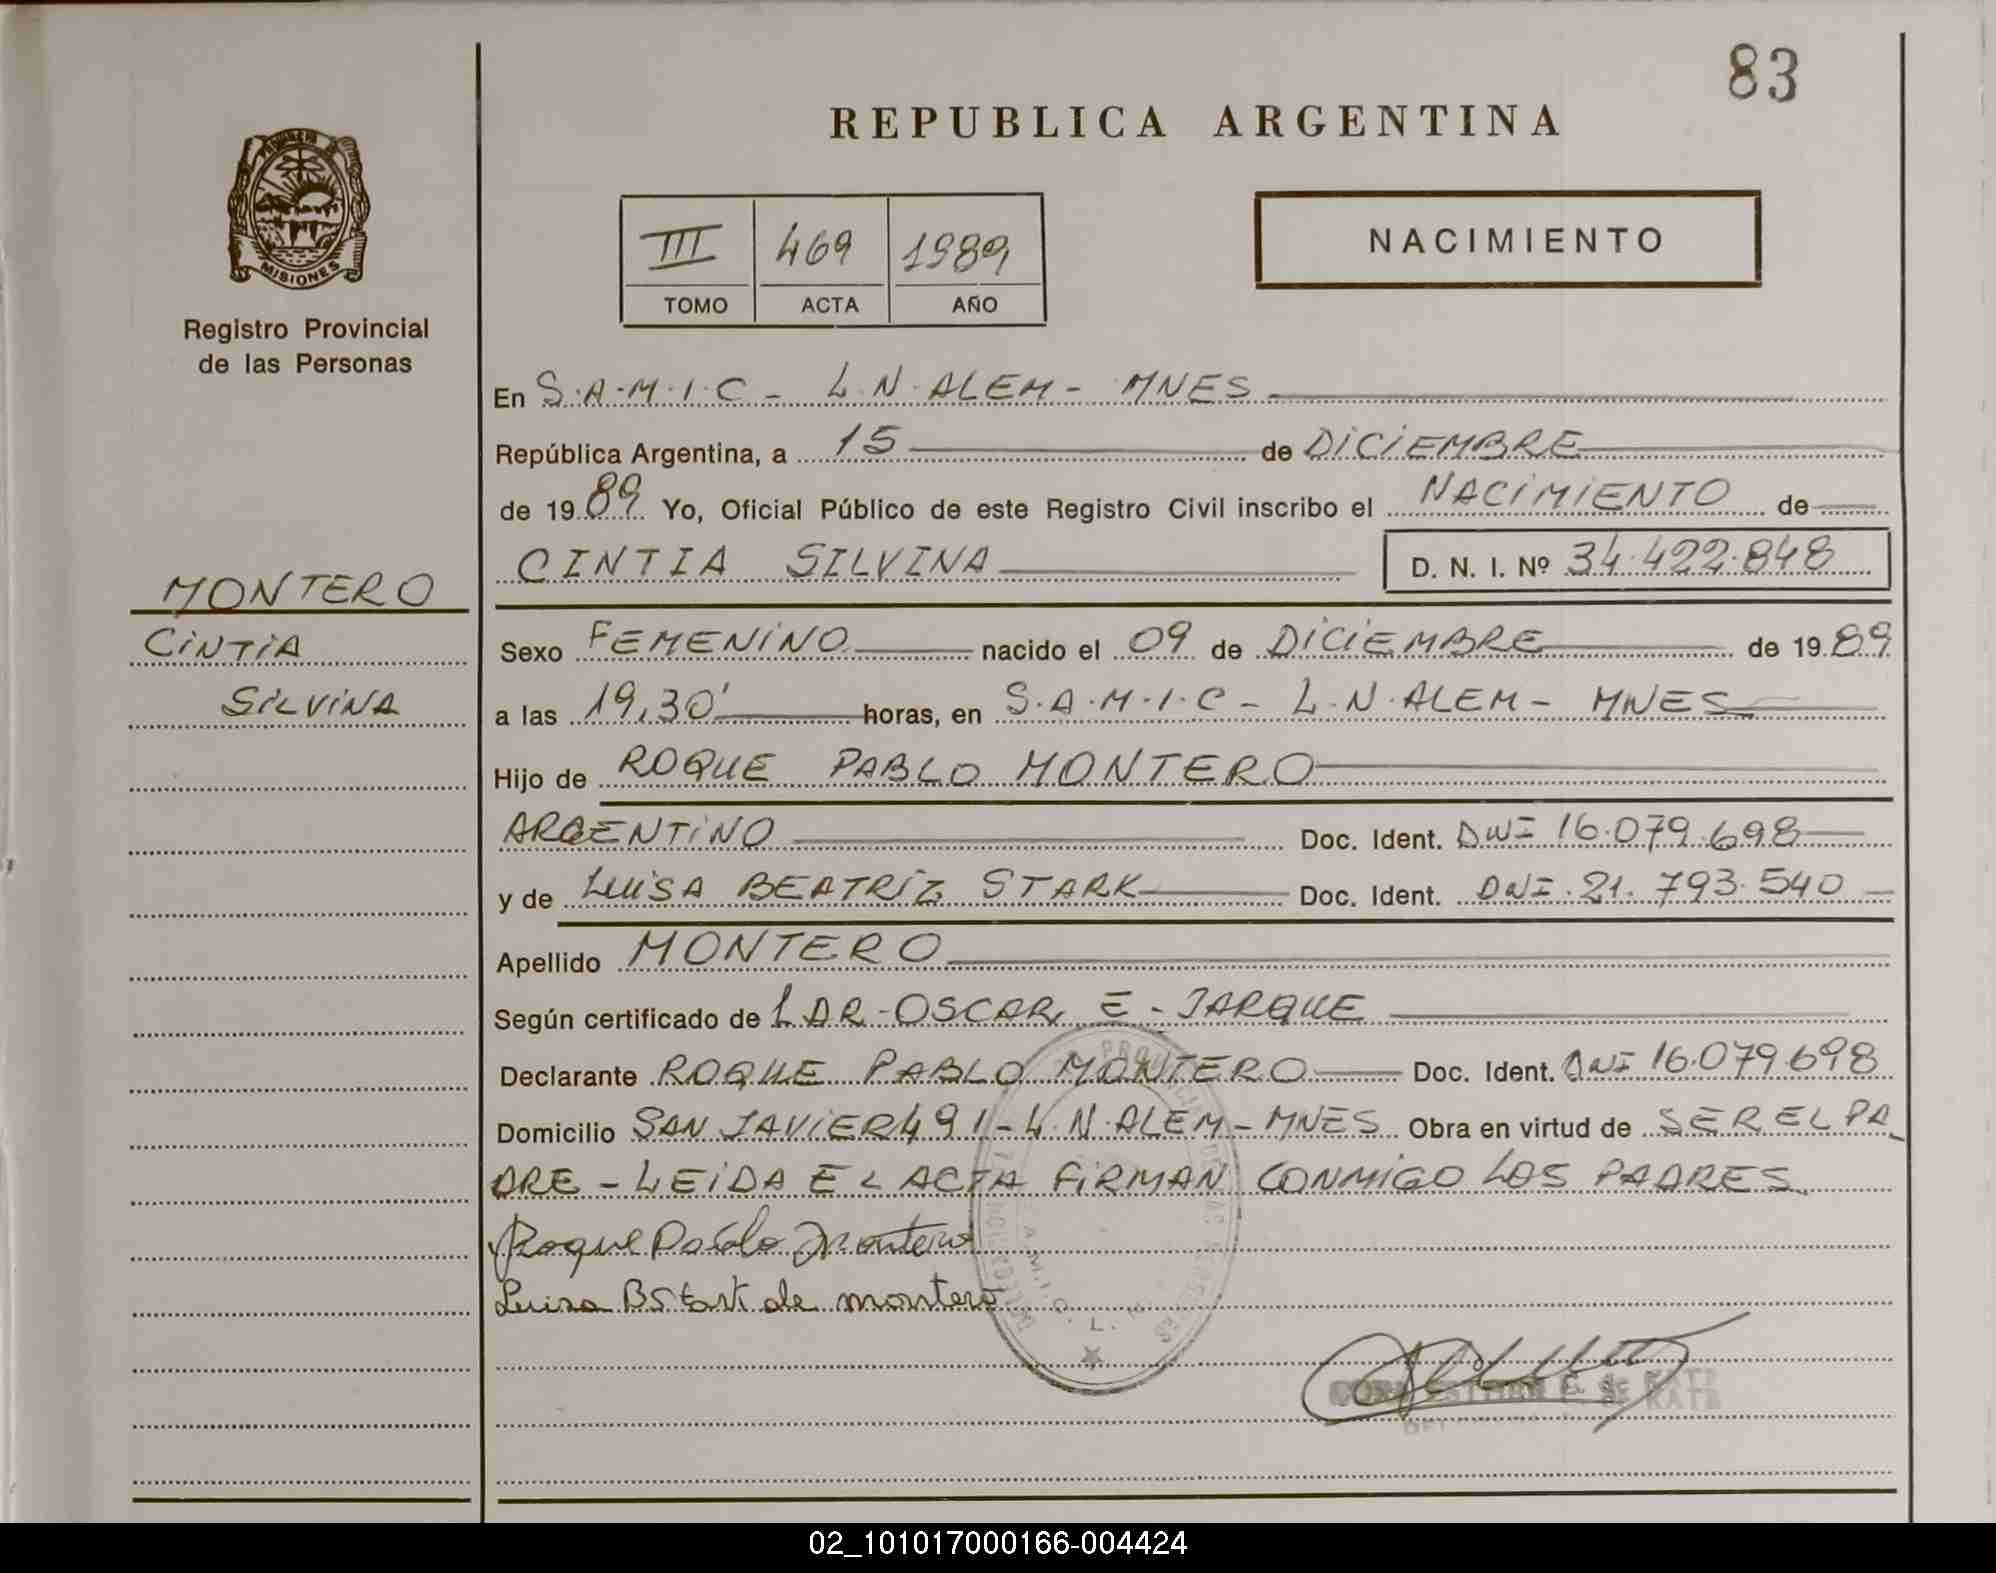 83
REPUBLICA ARGENTINA
MISIONES
Registro Provincial
de las Personas
III 469 1989
TOMO ACTA AÑO
NACIMIENTO
En S.A.M.I.C - L.N.ALEM - MNES
República Argentina, a 15 de DICIEMBRE
de 1989 Yo, Oficial Público de este Registro Civil inscribo el NACIMIENTO de
CINTIA SILVINA D. N. I. Nº 34.422.848
MONTERO
CINTIA
SILVINA
Sexo FEMENINO nacido el 09 de DICIEMBRE de 1989
a las 19,30' horas, en S.A.M.I.C - L.N.ALEM - MNES
Hijo de ROQUE PABLO MONTERO
ARGENTINO Doc. Ident. DNI 16.079.698
y de LUISA BEATRIZ STARK Doc. Ident. DNI.21.793.540
Apellido MONTERO
Según certificado de DR-OSCAR E-JARQUE
Declarante ROQUE PABLO MONTERO Doc. Ident. DNI 16.079.698
Domicilio SAN JAVIER 491 - L.N.ALEM - MNES Obra en virtud de SER EL PA
DRE - LEIDA EL ACTA FIRMAN CONMIGO LOS PADRES.
Roque Pablo Montero
Luisa B Stark de montero
02_101017000166-004424